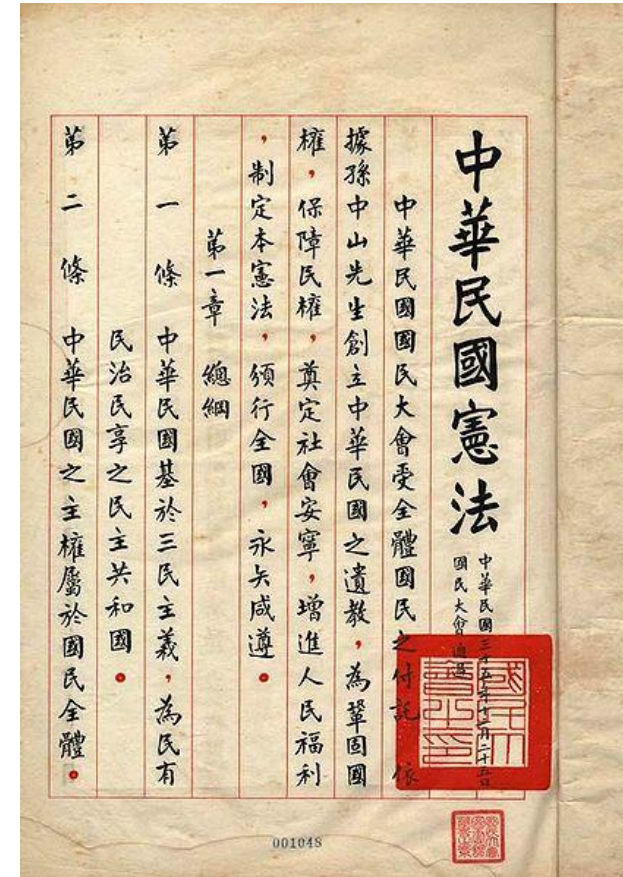 中華民國憲法
中華民國三十五年十二月二十五日
國民大會通過
中華民國國民大會受全體國民之付託 依
據孫中山先生創立中華民國之遺教，為鞏固國
權，保障民權，奠定社會安寧，增進人民福利
，制定本憲法，頒行全國，永矢咸遵。
第一章 總綱
第一條 中華民國基於三民主義，為民有
民治民享之民主共和國。
第二條 中華民國之主權屬於國民全體。
國民大會之印
001048